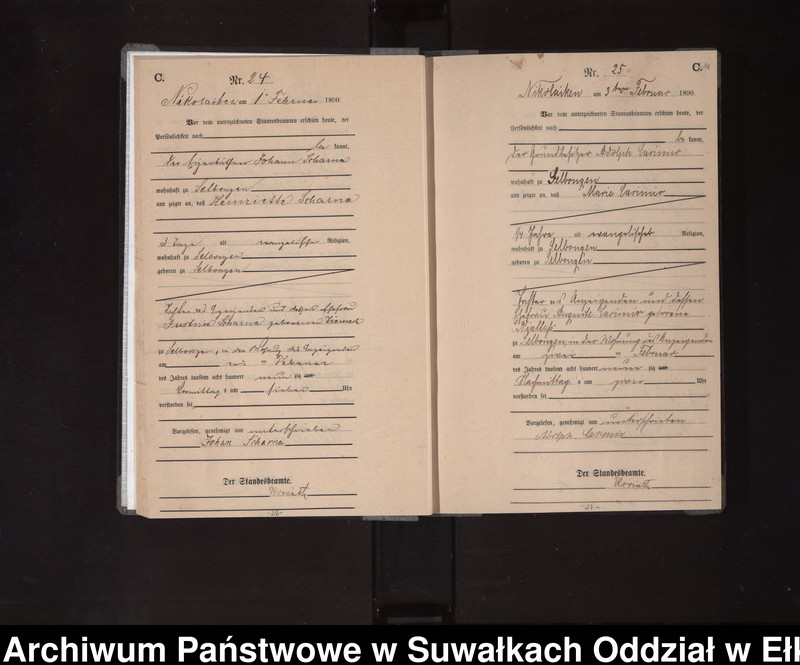 C.
Nr. 24
Nikolaiken am 1 Februar 1890.
Vor dem unterzeichneten Standesbeamten erschien heute, der
Persönlichkeit nach
be kannt,
der Eigenkäthner Johann Scharna
wohnhaft zu Selbongen
und zeigte an, daß Henriette Scharna
alt evangelischer Religion,
wohnhaft zu Selbongen
geboren zu Selbongen
Tochter des Anzeigenden und dessen Ehefrau
Scharna geborenen
zu Selbongen, in der Wohnung des Anzeigenden
am Februar
des Jahres tausend acht hundert neunzig
Vormittag s um sieben Uhr
verstorben sei
Vorgelesen, genehmigt und unterschrieben
Johan Scharna
Der Standesbeamte.
-26-
C.
Nr. 25
Nikolaiken am 3ten Februar 1890.
Vor dem unterzeichneten Standesbeamten erschien heute, der
Persönlichkeit nach
be kannt,
der Grundbesitzer Adolph Casimir
wohnhaft zu Selbongen
und zeigte an, daß Marie Casimir
1/4 Jahre, alt evangelischer Religion,
wohnhaft zu Selbongen
geboren zu Selbongen
Tochter des Anzeigenden und dessen
Ehefrau Auguste Casimir geborene
zu Selbongen, in der Wohnung des Anzeigenden
am zwei Februar
des Jahres tausend acht hundert neunzig
Nachmittag s um zwei Uhr
verstorben sei
Vorgelesen, genehmigt und unterschrieben
Adolph Casimir
Der Standesbeamte.
-27-
Archiwum Państwowe w Suwałkach Oddział w Eł